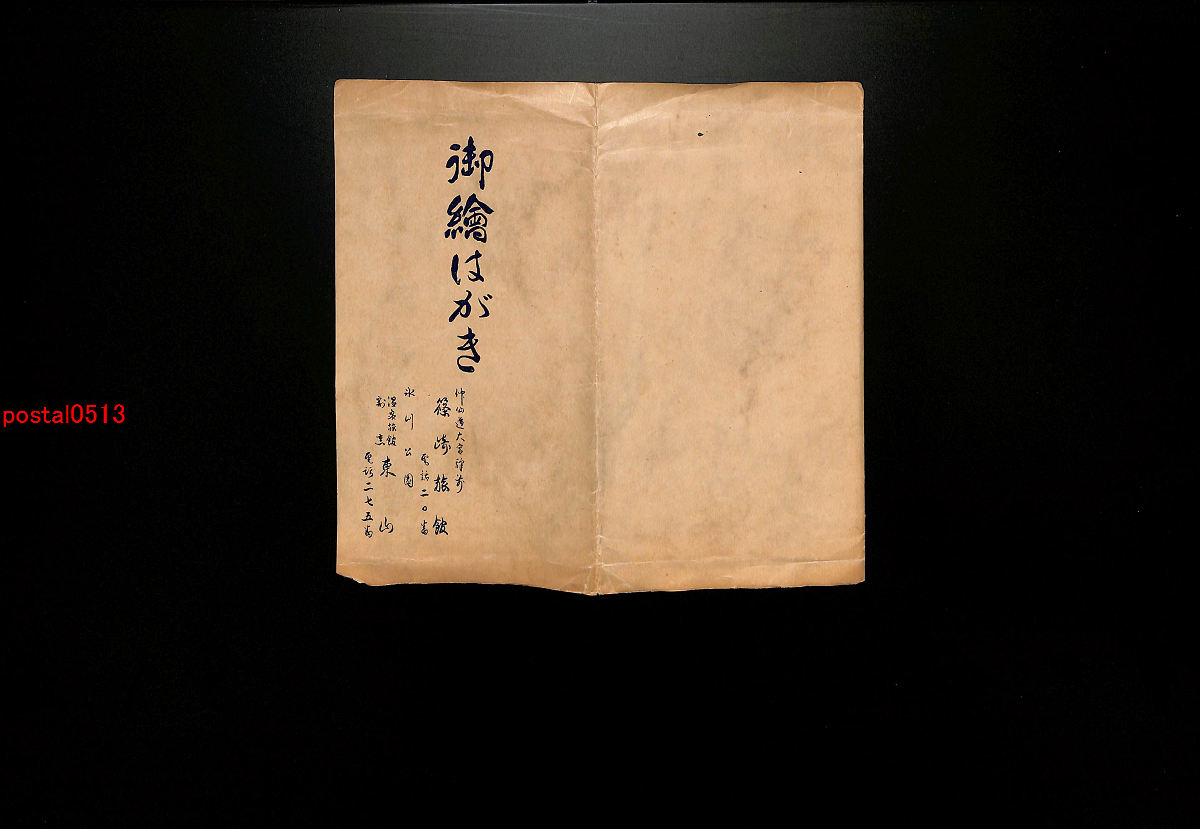 御繪はがき
仲仙道大宮驛前
篠崎旅館
電話二〇番
氷川公園
温泉旅館
割烹
東山
電話二七五番
postal0513